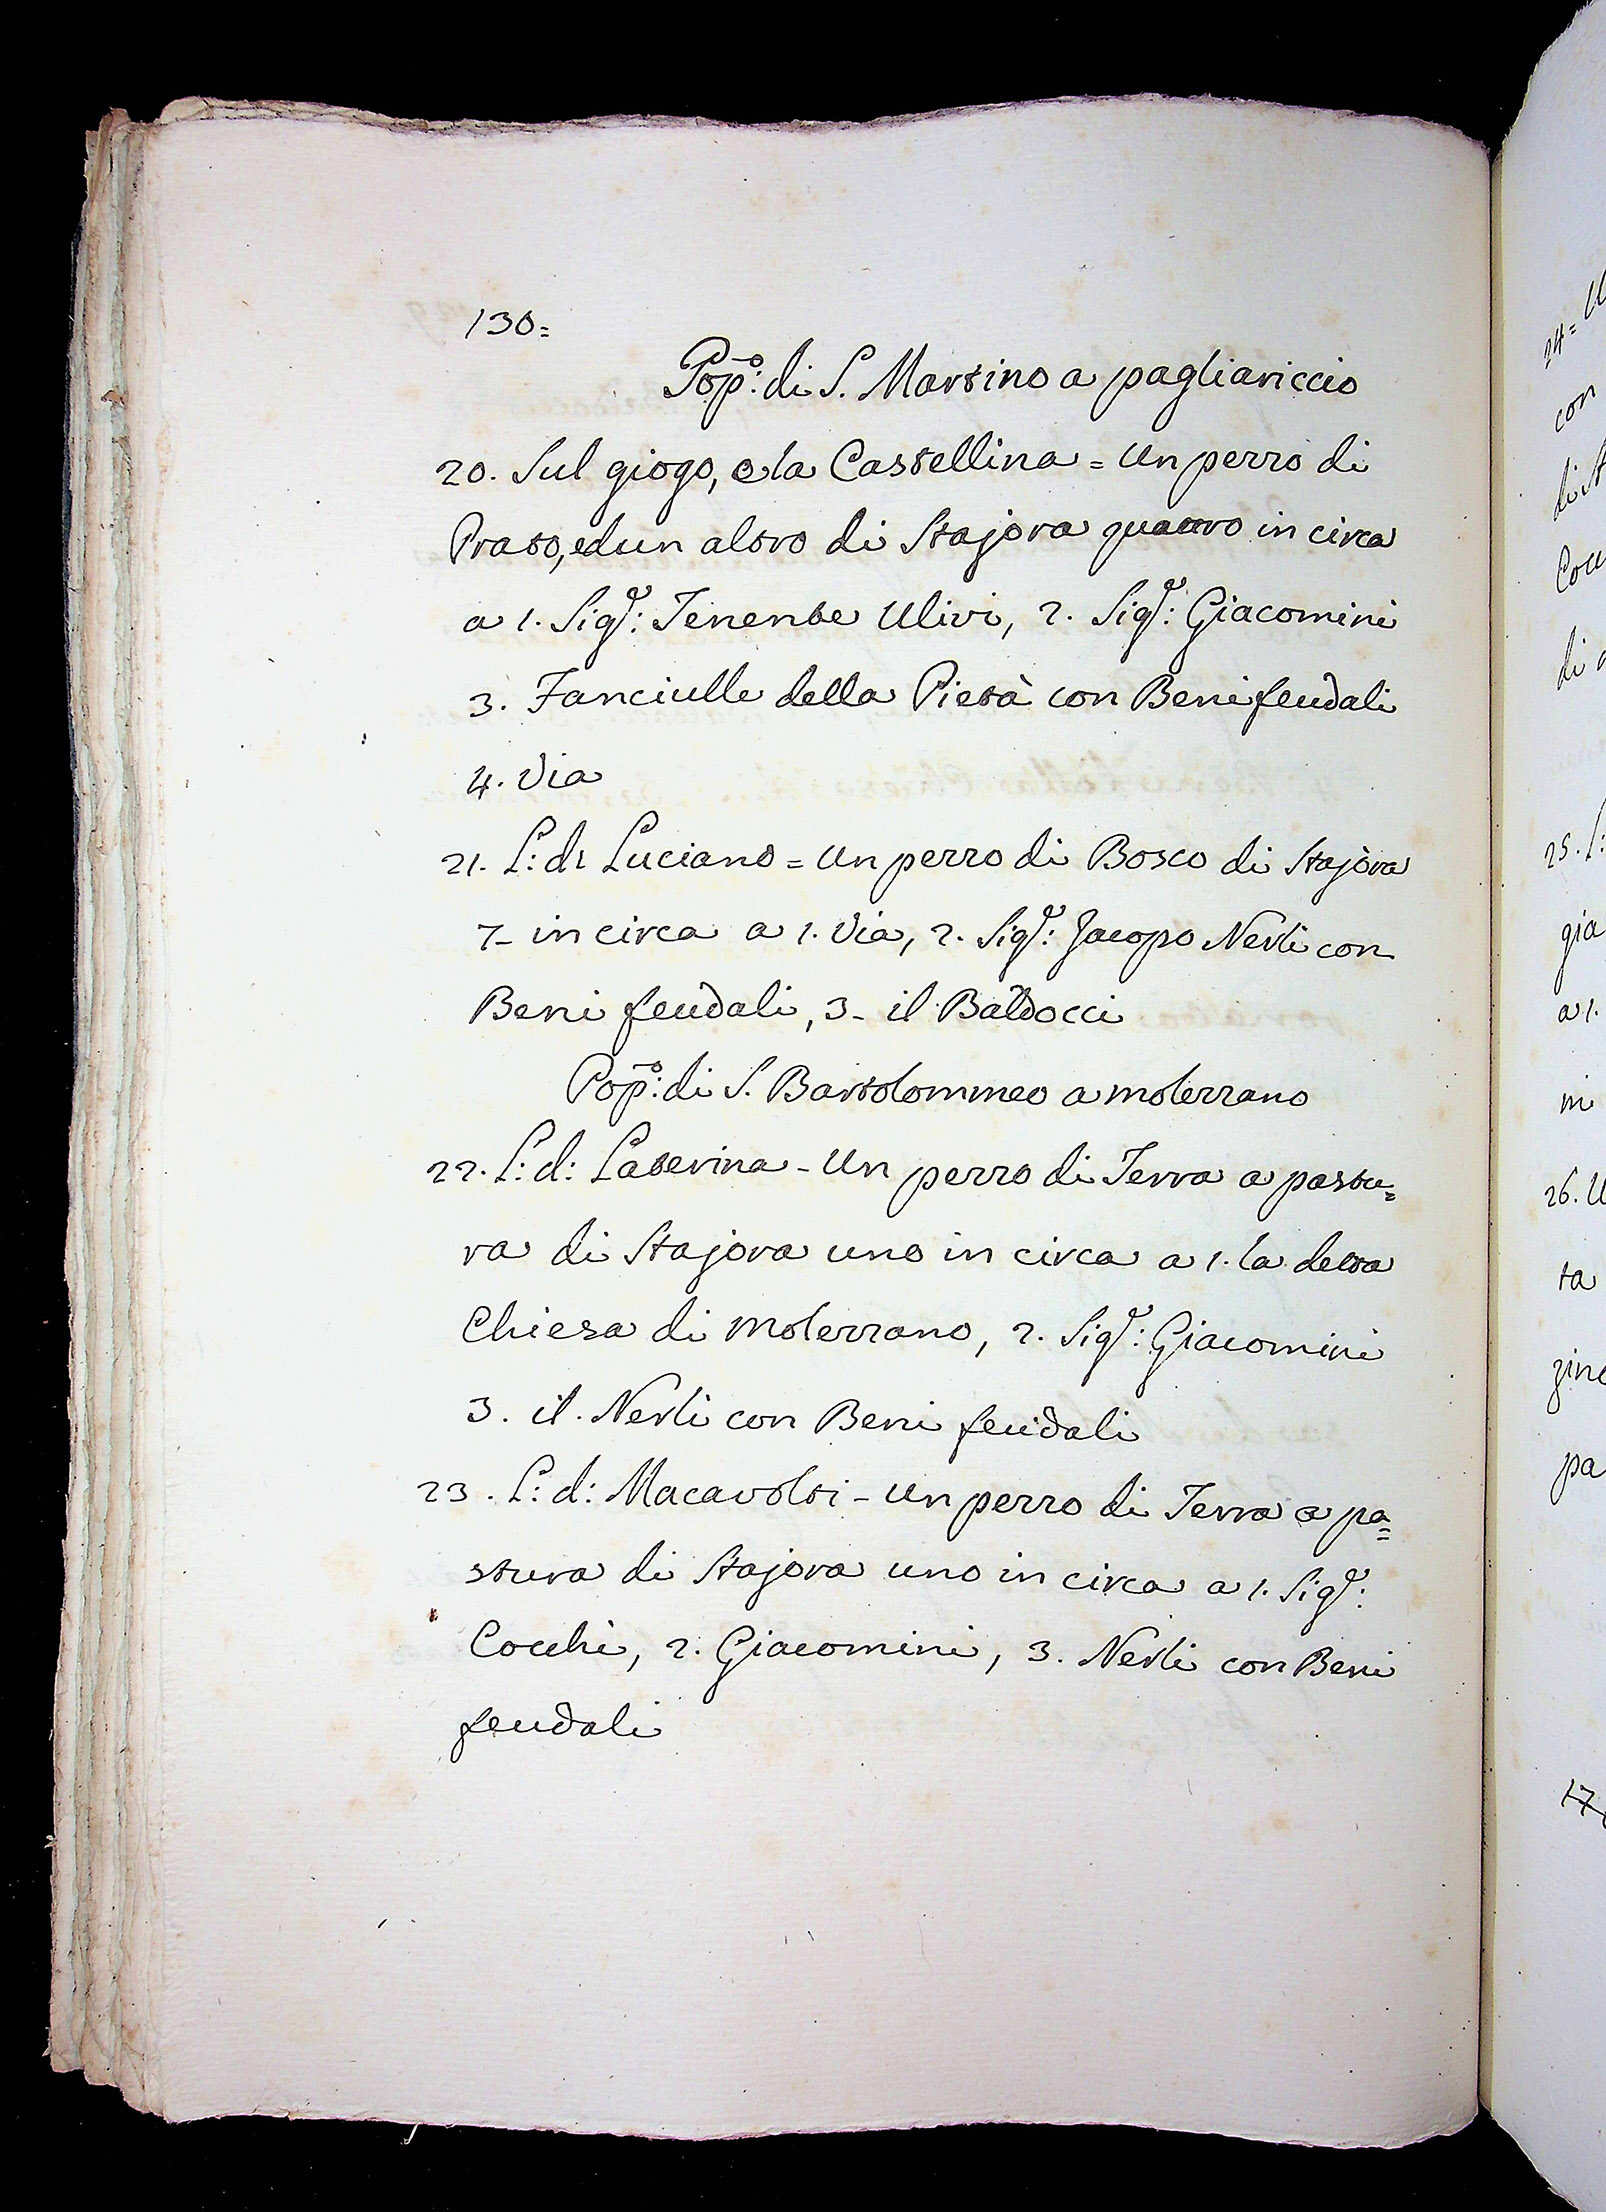 130=
Pop͞o: di S. Martino a pagliariccio
20. Sul giogo, o la Castellina = Un pezzo di
Prato, ed un altro di Stajora quattro in circa
a 1. Sigr: Tenente Ulivi, 2. Sigr: Giacomini
3. Fanciulle della Pietà con Beni feudali
4. Via
21. L: di Luciano = Un pezzo di Bosco di Stajora
7- in circa a 1. Via, 2. Sigr: Jacopo Nerli con
Beni feudali, 3- il Baldocci
Pop͞o: di S. Bartolommeo a molezzano
22. L: d: Laterina - Un pezzo di Terra a pastu=
ra di Stajora uno in circa a 1. la detta
Chiesa di molezzano, 2. Sigr: Giacomini
3. il Nerli con Beni feudali
23. L: d: Macavolti - Un pezzo di Terra a pa=
stura di Stajora uno in circa a 1. Sigr:
Cocchi, 2. Giacomini, 3. Nerli con Beni
feudali
24= U
con
di St
Coc
di
25. L:
gia
a 1.
in
26. U
ta
zine
pa